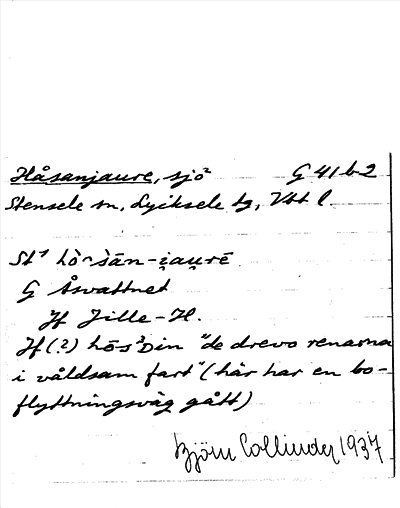 Håsanjaure, sjö² G 41 b2
Stensele sn, Lycksele tg, Vbt l.
St¹ hò̂sān-i̯au̯rē
G Åsvattnet
Jf Jille-H.
Jf (?) hōs³Din "de drevo renarna
i våldsam fart" (här har en bo-
flyttningsväg gått)
Björn Collinder 1937